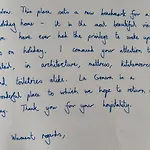 wow. This place sets a new benchmark for a
holiday home - it is the most beautiful view
we have ever had the privilege to wake up
to on holiday. I commend your attention to
detail, in architecture, mattress, kitchenware
and toiletries alike. La Gomera is a
wonderful place to which we hope to return, one
day. Thank you for your hospitality.
Warmest regards,